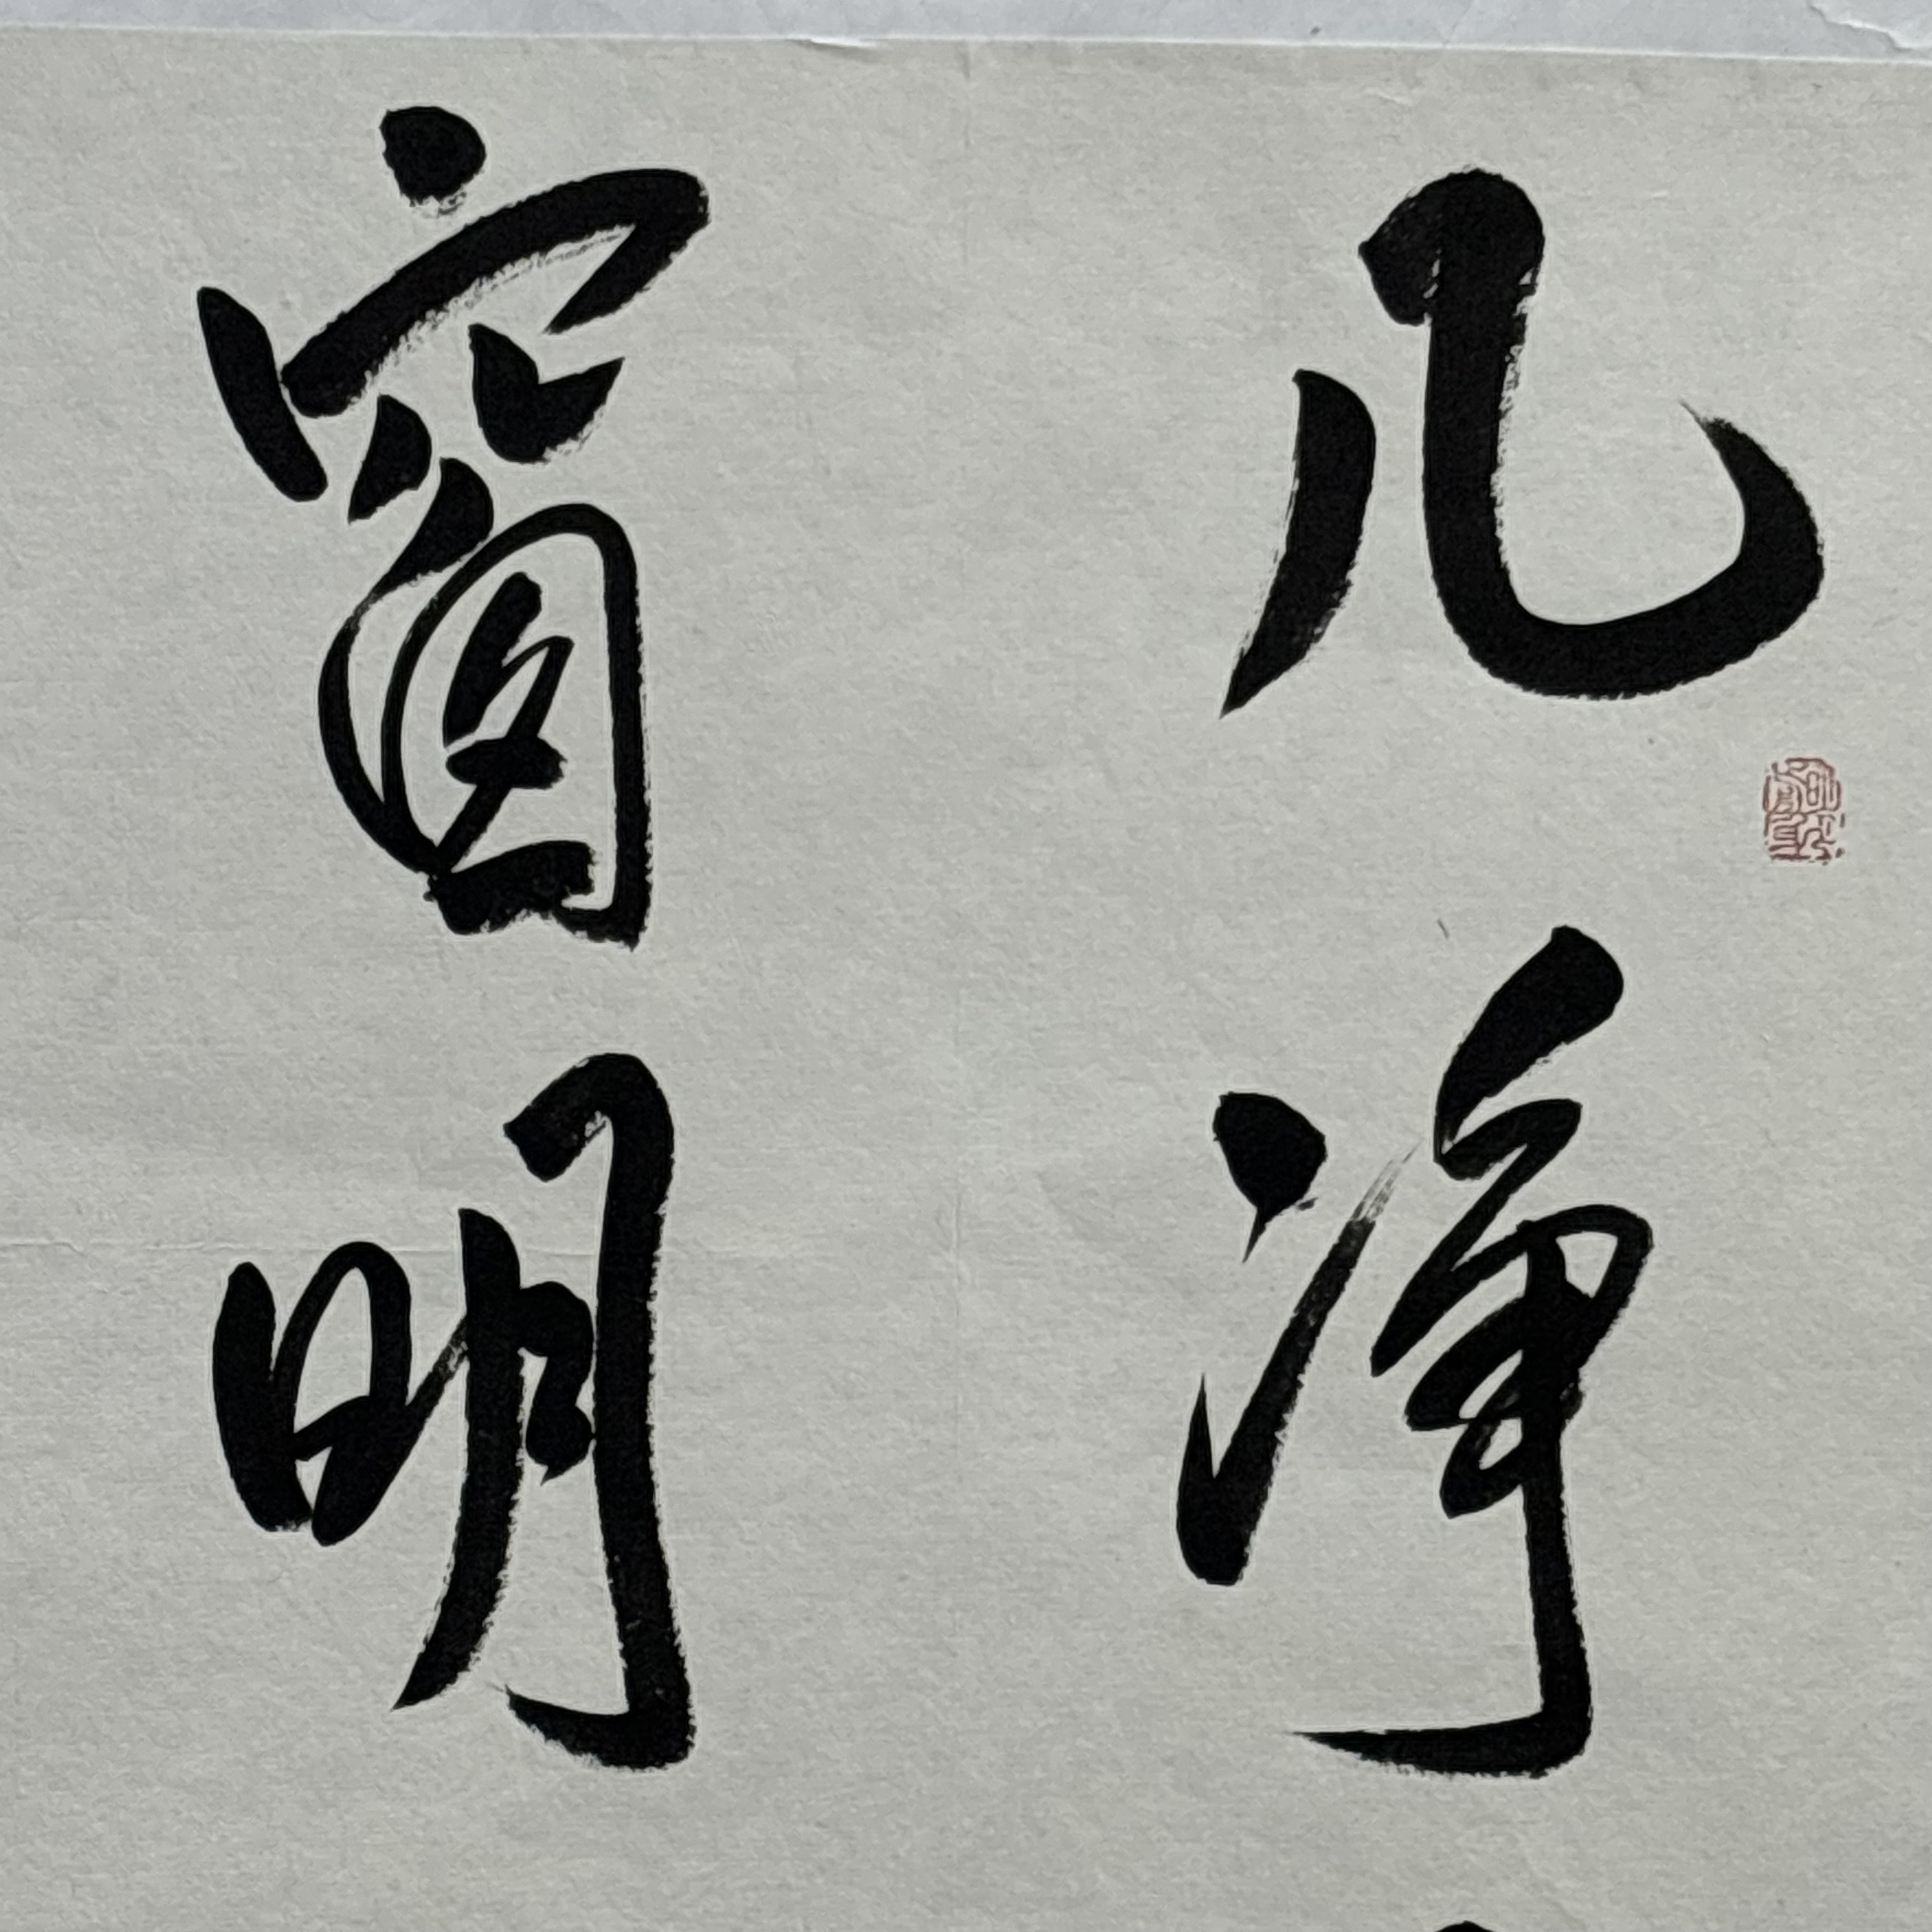 几净
窗明